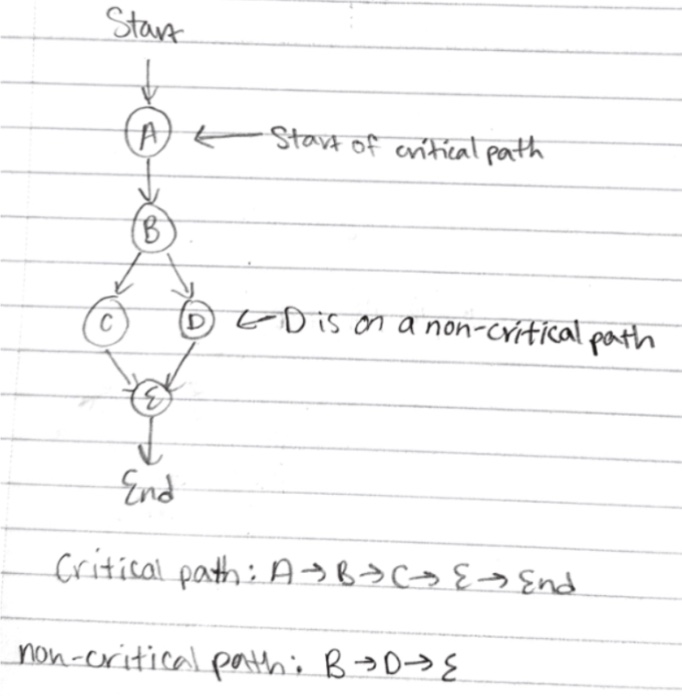 Start
A ← Start of critical path
B
C D ← D is on a non-critical path
E
End
Critical path: A → B → C → E → End
non-critical path: B → D → E